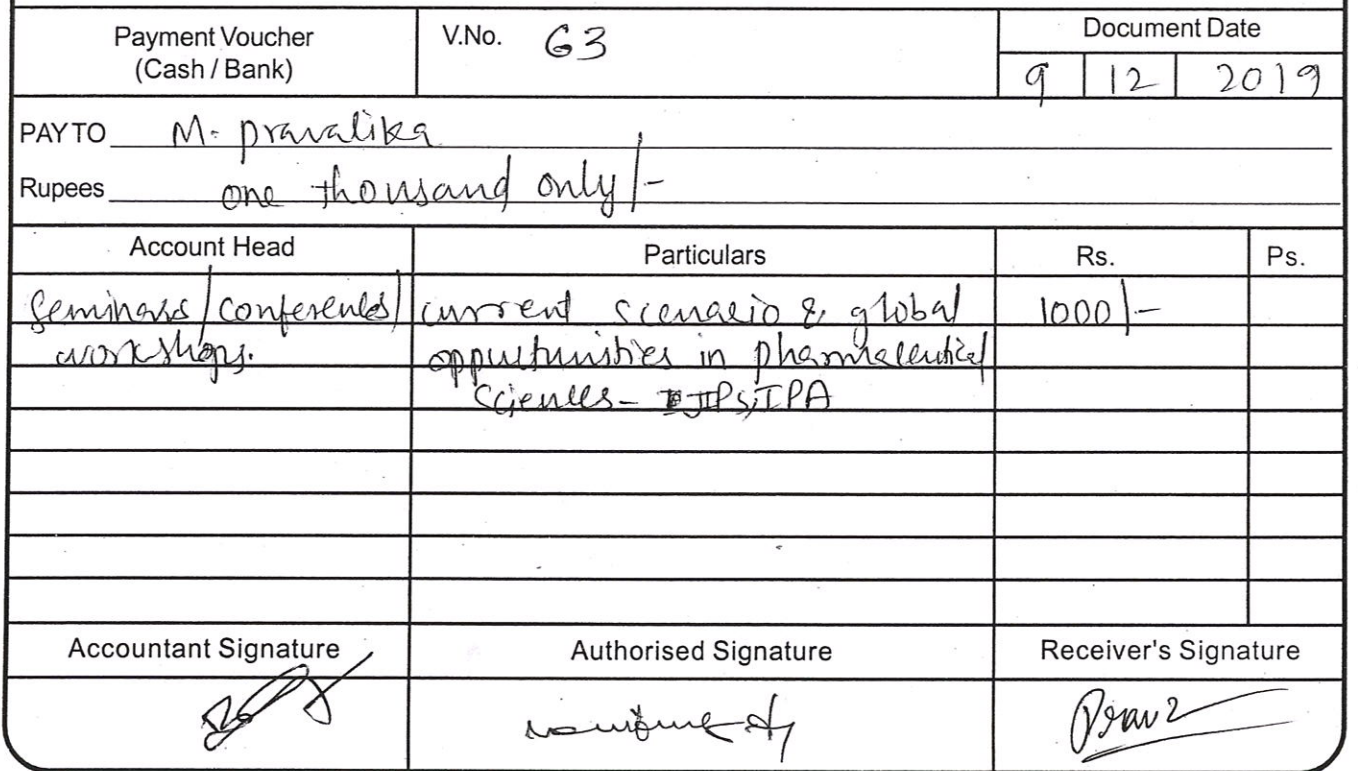 Payment Voucher
(Cash / Bank)
V.No. 63
Document Date
9 12 2019
PAY TO M. pravalika
Rupees one thousand only/-
Account Head Particulars Rs. Ps.
Seminars/conferences/ current scenario & global 1000/-
workshops. oppurtunities in pharmaceutical
Sciences- IPA
Accountant Signature Authorised Signature Receiver's Signature